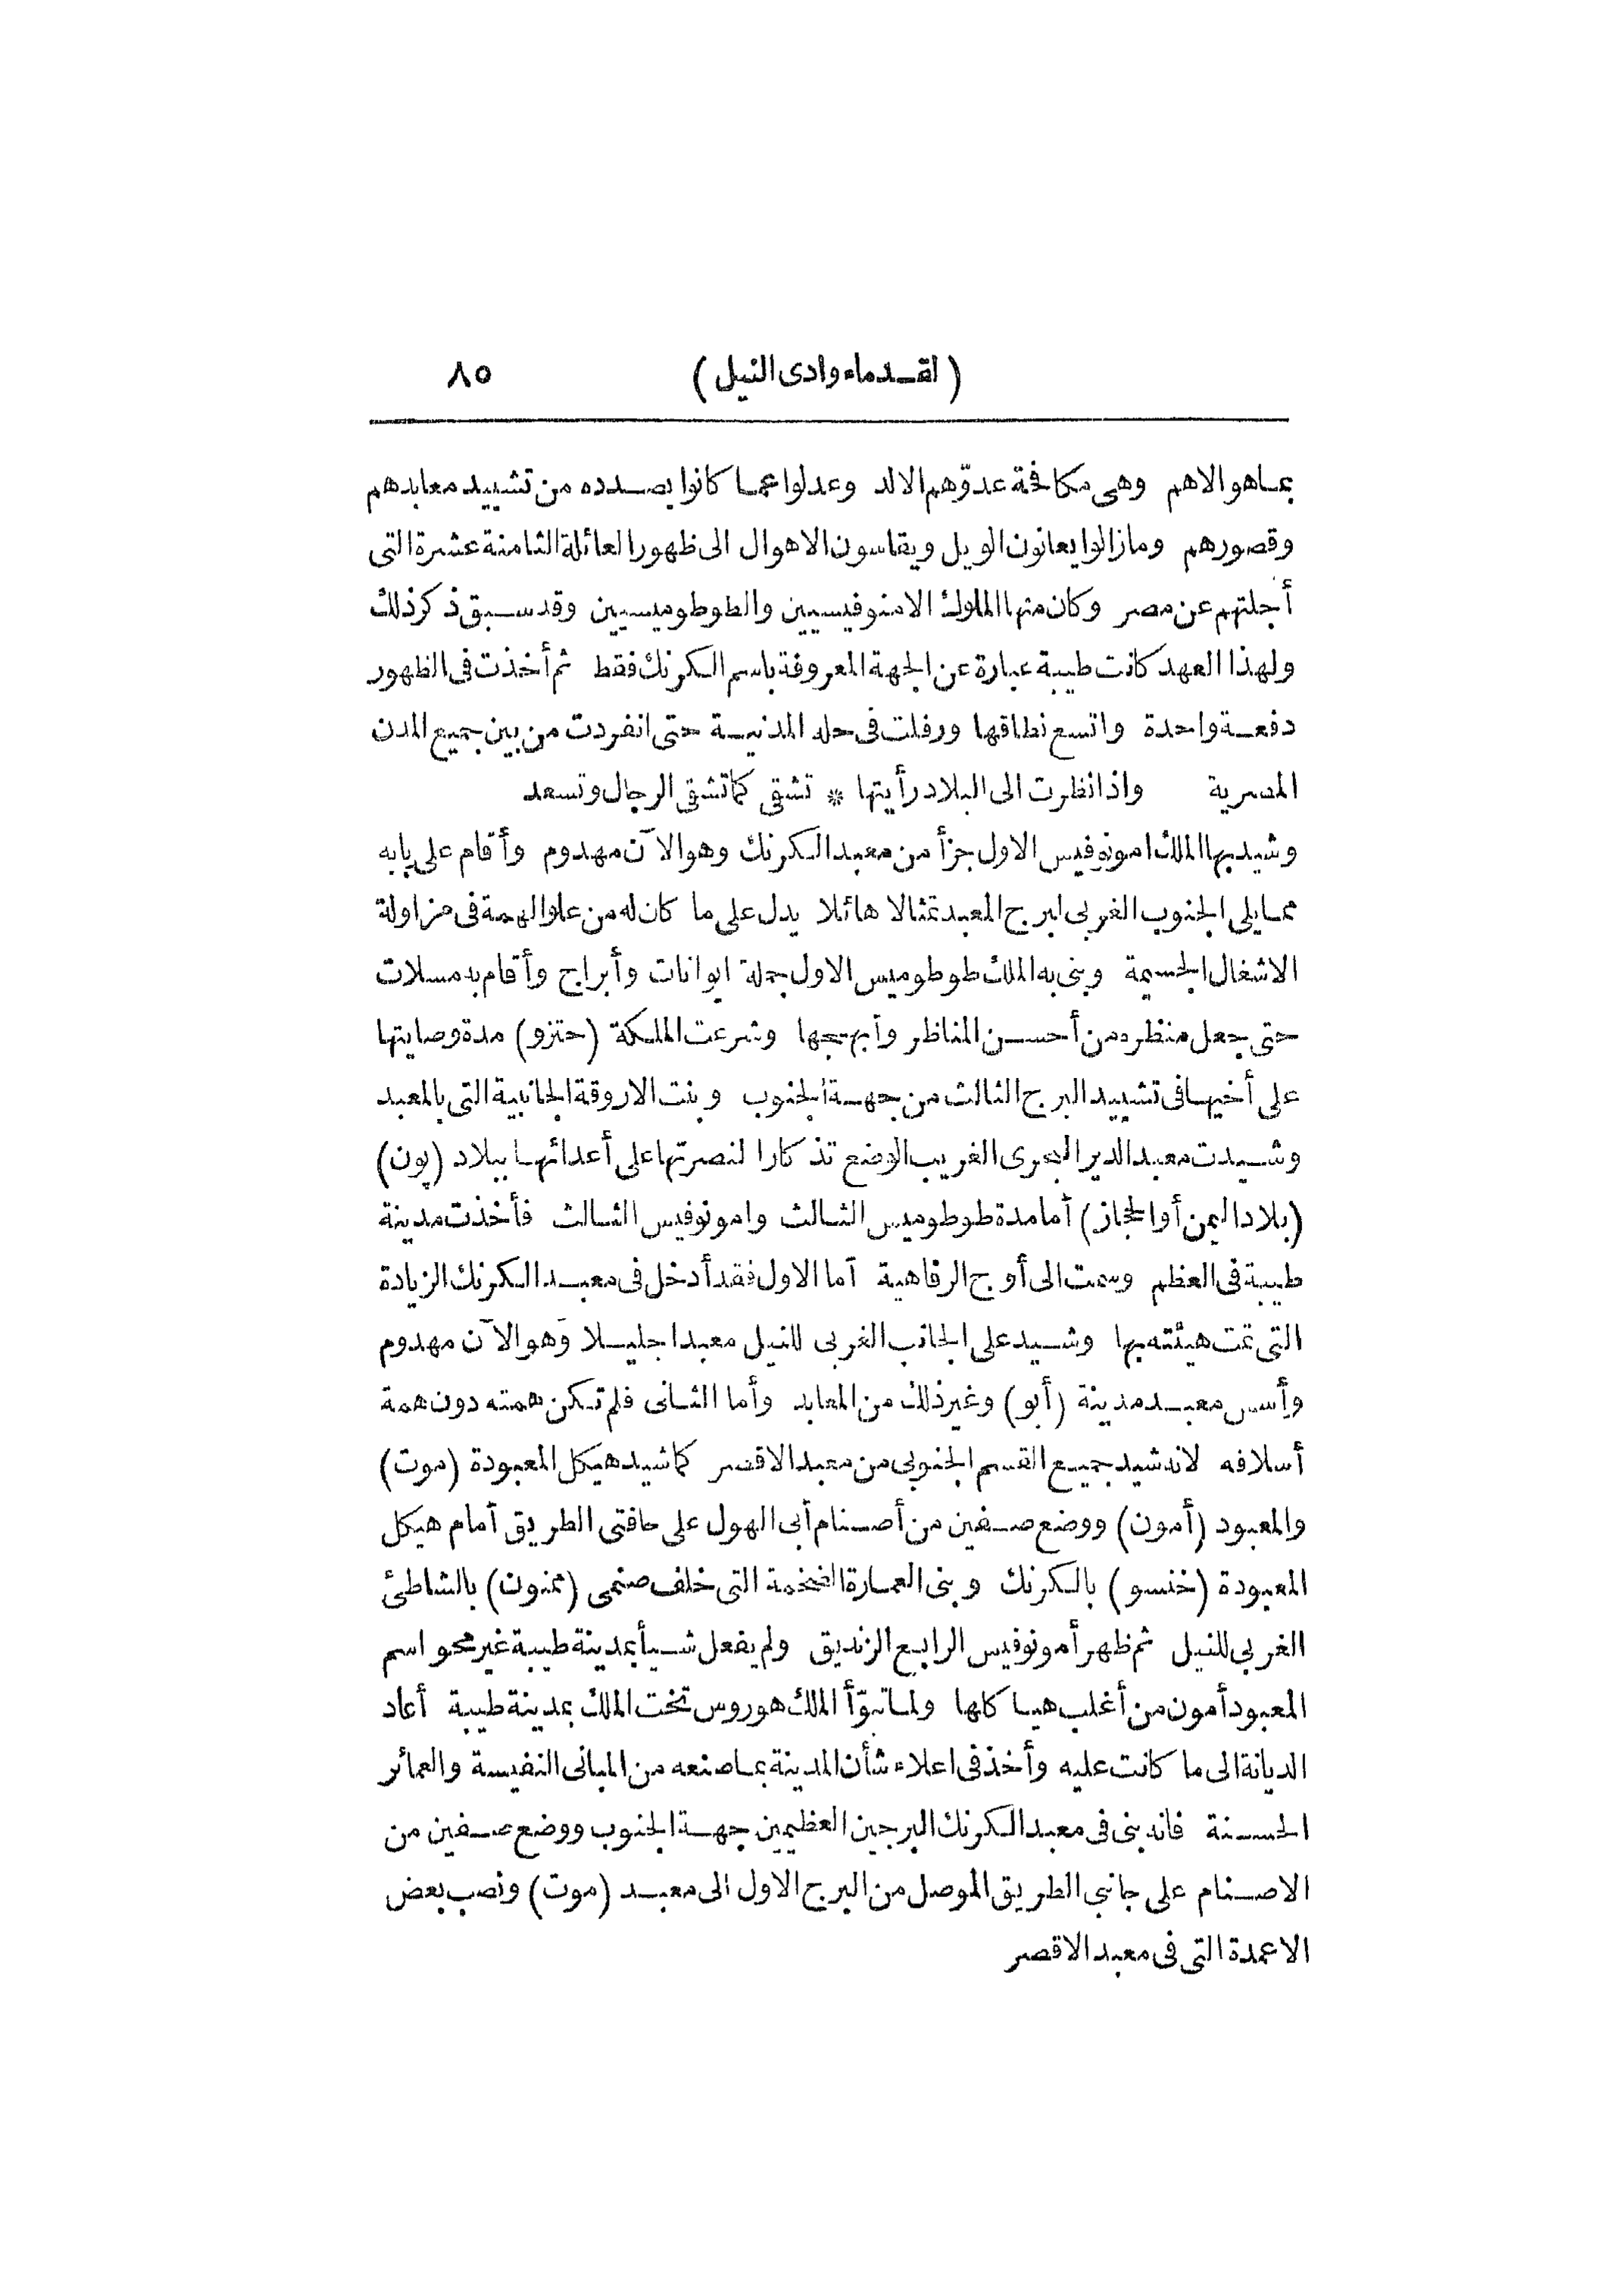 (لقدماء وادى النيل) ٨٥
بما هو الاهم وهى مكافحة عدوّهم الالد وعدلوا عما كانوا بصدده من تشييد معابدهم
وقصورهم ومازالوا يعانون الويل ويقاسون الاهوال الى ظهور العائلة الثامنة عشرة التى
أجلتهم عن مصر وكان منها الملوك الامنوفيسيين والطوطوميسيين وقد سبق ذكر ذلك
ولهذا العهد كانت طيبة عبارة عن الجهة المعروفة باسم الكرنك فقط ثم أخذت فى الظهور
دفعة واحدة واتسع نطاقها ورفلت فى حلة المدنية حتى انفردت من بين جميع المدن
المصرية واذا نظرت الى البلاد رأيتها * تشقى كما تشقى الرجال وتسعد
وشيد بها الملك امونوفيس الاول جزأ من معبد الكرنك وهو الآن مهدوم وأقام على بابه
مما يلى الجنوب الغربى لبرج المعبد تمثالا هائلا يدل على ما كان له من علو الهمة فى مزاولة
الاشغال الجسيمة وبنى به الملك طوطوميس الاول جملة ايوانات وأبراج وأقام به مسلات
حتى جعل منظره من أحسن المناظر وأبهجها وشرعت الملكة (حتزو) مدة وصايتها
على أخيها فى تشييد البرج الثالث من جهة الجنوب وبنت الاروقة الجانبية التى بالمعبد
وشيدت معبد الدير البحرى الغريب الوضع تذكارا لنصرتها على أعدائها ببلاد (پون)
(بلاد اليمن أو الحجاز) أما مدة طوطوميس الثالث وامونوفيس الثالث فأخذت مدينة
طيبة فى العظم وسمت الى أوج الرفاهية أما الاول فقد أدخل فى معبد الكرنك الزيادة
التى تمت هيئته بها وشيد على الجانب الغربى للنيل معبدا جليلا وهو الآن مهدوم
وأسس معبد مدينة (أبو) وغير ذلك من المعابد وأما الثانى فلم تكن همته دون همة
أسلافه لانه شيد جميع القسم الجنوبى من معبد الاقصر كما شيد هيكل المعبودة (موت)
والمعبود (أمون) ووضع صفين من أصنام أبى الهول على حافتى الطريق أمام هيكل
المعبودة (خنسو) بالكرنك وبنى العمارة الضخمة التى خلف صنمى (ممنون) بالشاطئ
الغربى للنيل ثم ظهر أمونوفيس الرابع الزنديق ولم يفعل شيأ بمدينة طيبة غير محو اسم
المعبود أمون من أغلب هياكلها ولما تبوّأ الملك هوروس تخت الملك بمدينة طيبة أعاد
الديانة الى ما كانت عليه وأخذ فى اعلاء شأن المدينة بما صنعه من المبانى النفيسة والعمائر
الحسنة فانه بنى فى معبد الكرنك البرجين العظيمين جهة الجنوب ووضع صفين من
الاصنام على جانبى الطريق الموصل من البرج الاول الى معبد (موت) ونصب بعض
الاعمدة التى فى معبد الاقصر